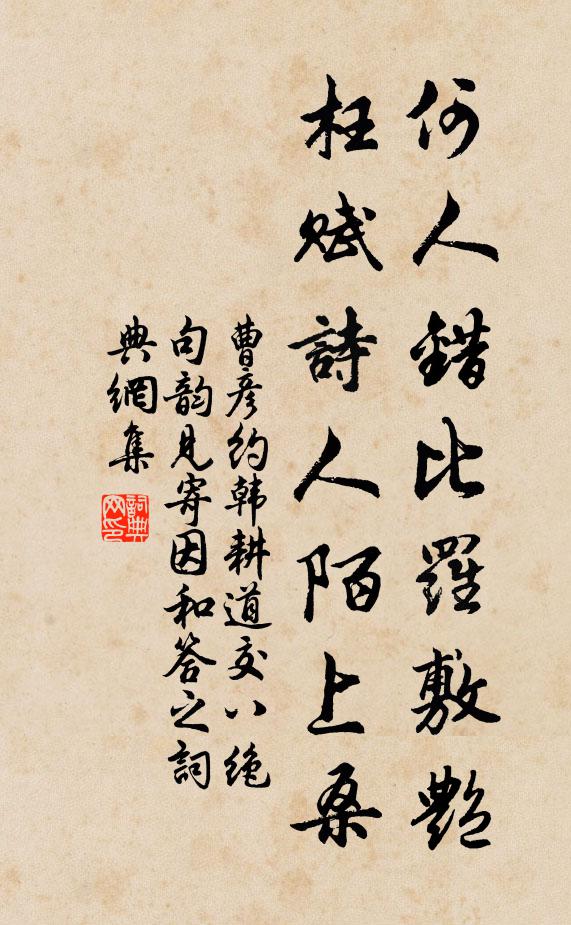 何人錯比羅敷豔
枉賦詩人陌上桑
曹彥約韩耕道交八絶
句韵見寄因和答之詞
典網集
詞典
网印